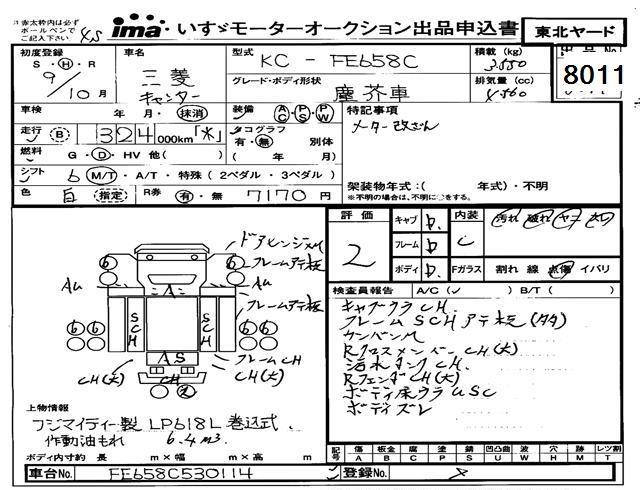 赤太枠内は必ず
ボールペンで
ご記入下さい
ima いすゞモーターオークション出品申込書
東北ヤード
初度登録
S・H・R
9/10月
車名
三菱
キャンター
型式
KC - FE658C
グレード・ボディ形状
塵芥車
積載 (kg)
排気量 (cc)
8011
車検 年・月・抹消
装備 AC PS PW
特記事項
メーター改ざん
走行 B 324,000km「不」
タコグラフ
有・無 別体
( 年 月)
燃料 G・D・HV 他( )
シフト 6 M/T・A/T・特殊(2ペダル・3ペダル)
架装物年式:( 年式)・不明
※不明の場合は、不明に○をする。
色 白 指定 R券 有・無 7170 円
評価
2
キャブ D.
フレーム D.
ボディ D.
内装
C
汚れ 破れ ヤケ
Fガラス 割れ 線 点傷 イパリ
ドアヒンジMM
フレームアテ板
フレームアテ板
フレームCH
CH(大)
CH(大)
CH
A
SCH
SCH
AS
検査員報告 A/C( ) B/T( )
キャブウラCH.
フレームSCHアテ板(タタ)
ケンパンM
RクロスメンバーCH(大)
汚水タンクCH.
RフェンダCH(大)
ボディ床ウラUSC
ボディズレ
上物情報
フジマイティー製 LP618L 巻込式.
作動油もれ 6.4m3.
ボディ内寸約 長 m×幅 m×高 m
記号
傷 A
板金 B
腐 C
塗 P
錆 S
凹凸曲 U
波 W
穴 H
跡 M
レツ割 T
車台No. FE658C530114
登録No.